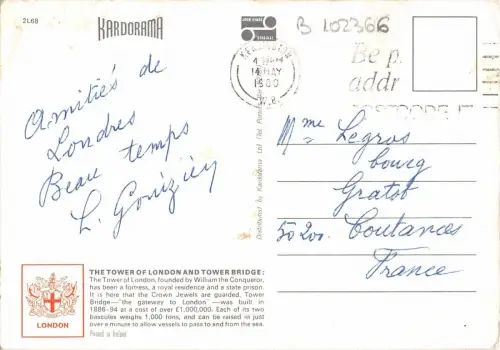 2L68
KARDORAMA
B 102366
KENSINGTON
14 MAY
1980
W.8
Be p
addr
POSTCODE IT
Amitiés de
Londres
Beau temps
Mme Legros
bourg
Gratot
50200 Coutances
France
Distributed by Kardorama Ltd
THE TOWER OF LONDON AND TOWER BRIDGE:
The Tower of London, founded by William the Conqueror,
has been a fortress, a royal residence and a state prison.
It is here that the Crown Jewels are guarded. Tower
Bridge—"the gateway to London"—was built in
1886-94 at a cost of over £1,000,000. Each of its two
bascules weighs 1,000 tons, and can be raised in just
over a minute to allow vessels to pass to and from the sea.
Printed in Ireland
LONDON